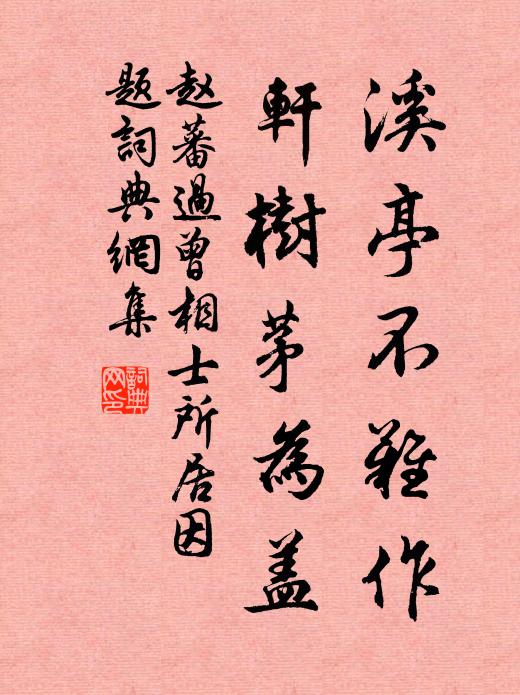 溪亭不難作
軒樹茅為盖
赵蕃過曾相士所居因
题詞典網集
詞典網印